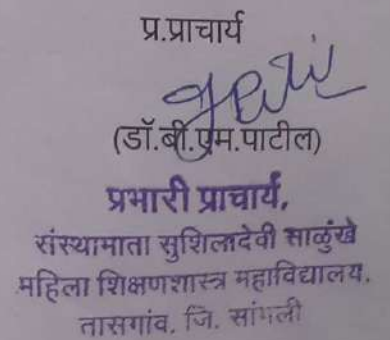 प्र.प्राचार्य
(डॉ.बी.एम.पाटील)
प्रभारी प्राचार्य,
संस्थामाता सुशिलादेवी साळुंखे
महिला शिक्षणशास्त्र महाविद्यालय.
तासगांव. जि. सांगली